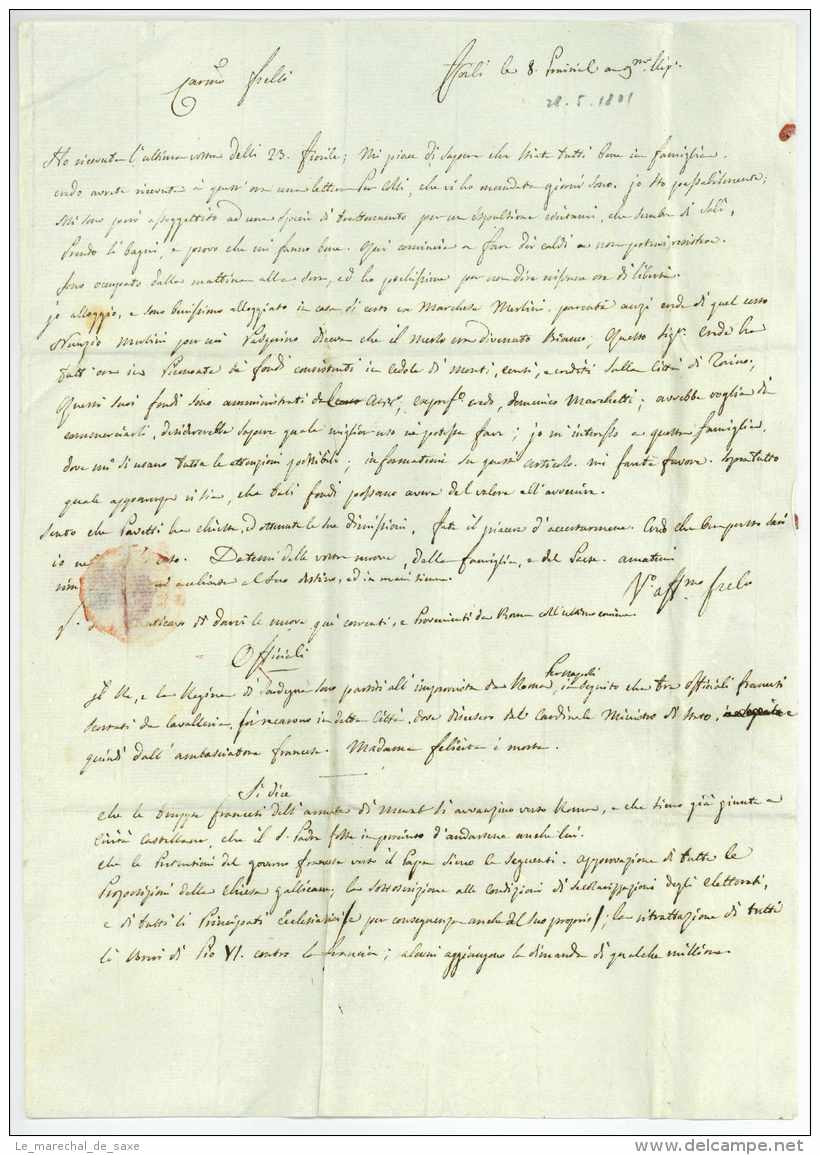 Carmo Frelli
Forli le 8. Prairial an 9me Rép.
28.5.1801
Ho ricevuta l'ultima vostra delli 23. fiorile; Mi piace di sapere che siate tutti bene in famiglia.
endo avrete ricevuta a quest'ora una lettera per Colli, che vi ho mandata giorni sono. io sto passabilmente;
Mi sono però assoggettito ad una specie di trattamento per un espulsione, che sembra di
Prendo li bagni, e provo che mi fanno bene. Qui comincia a fare dei caldi a non potervi resistere.
sono occupato dalla mattina alla sera, ed ho pochissime per non dire nissuna ore di libertà.
io alloggio, e sono benissimo alloggiato in casa di certo Marchese Merlini. parente anzi erede di quel certo
Nunzio Merlini per cui Pasquino diceva che il merlo era divenuto bianco, Questo Sigr. erede ha
tutt'ora in Piemonte de' fondi consistenti in cedole di monti, censi, e crediti sulla Città di Torino;
Questi suoi fondi sono amministrati da, Domenico Marchetti; avrebbe voglia di
commerciarli, desidererebbe sapere quale miglior uso ne potesse fare; io m'interesso a questa famiglia.
dove mi si usano tutte le attenzioni possibili; informazioni su questi articoli mi farete favore. sopratutto
quale apparenza vi sia, che tali fondi possano avere del valore all'avvenire.
sento che Pavetti ha chiesta, ed ottenuta le sue dimissioni, fate il piacere d'accertarmene. Credo che ben presto sarò
io caso. Datemi delle vostre nuove, della famiglia, e del Paese. amatemi
al suo destino, ed in mani sicure.
Vo. affmo frelo
di darvi le nuove qui correnti, e provenienti da Roma coll'ultimo corriere
Officiali
Il Re, e la Regina di Sardegna sono partiti all'improvista da Roma per Napoli, in seguito che tre officiali francesi
scortati da cavalleria, si recarono in detta Città, dove discesero dal Cardinale Ministro di stato, e
quindi dall'ambasciatore francese. Madama Felicita è morta.
Si dice
che le truppe francesi dell'armata di Murat si avvanzino verso Roma, e che siano già giunte a
Civita Castellana, che il S. Padre fosse in procinto d'andarsene anche lui.
che le Pretenzioni del governo francese verso il Papa siano le seguenti. approvazione di tutte le
Proposizioni della chiesa gallicana; la sottoscrizione alle condizioni di secolarizzazioni degli elettorati,
e di tutti li Principati Ecclesiastici e per conseguenza anche del suo proprio; la ritrattazione di tutti
li Brevi di Pio VI. contro la francia; alcuni aggiungono la dimanda di qualche millione.
Le_marechal_de_saxe
www.delcampe.net